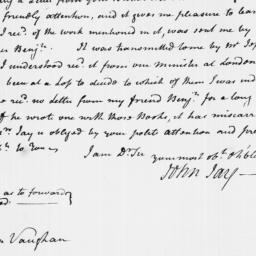 friendly attention, and it gives me pleasure to lear
I recd. of the work mentioned in it, was sent me by
r Benjn. It was transmitted to me by Mr Jef
I understood recd. it from our Minister at London
been at a Loss to decide to which of them I was ind
recd. no Letter from my friend Benjn. for a long
If he wrote one with those Books, it has miscarr
Jay is obliged by your polite attention and pre
to You,
I am Dr. Sir your most obt. & hble
John Jay —
as to forward
Vaughan